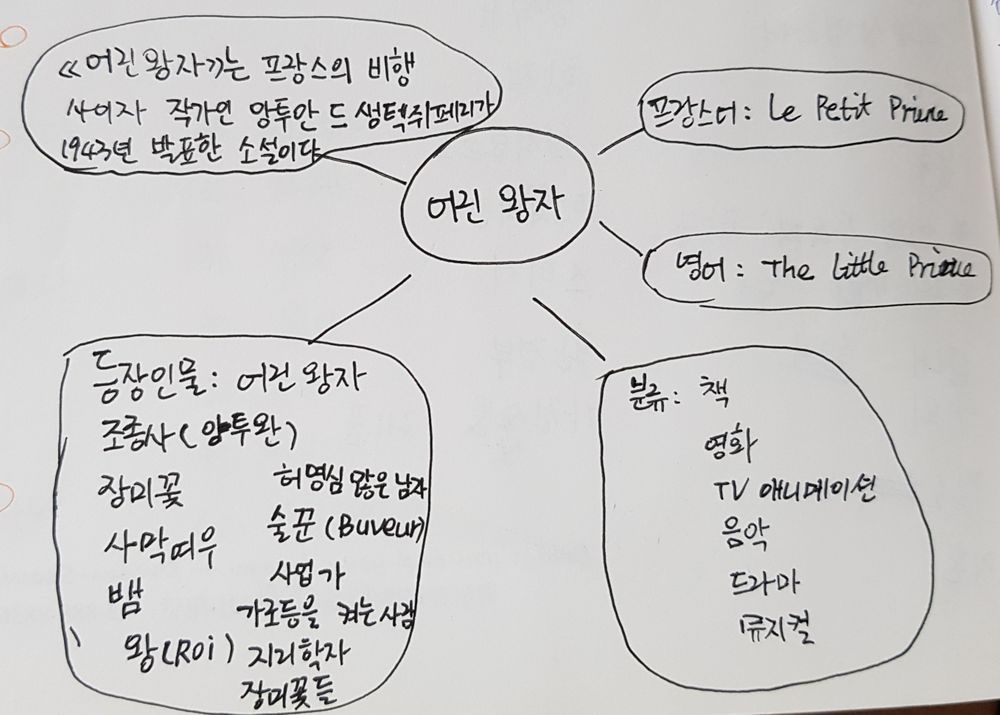 《어린왕자》는 프랑스의 비행
사이자 작가인 앙투안 드 생텍쥐페리가
1943년 발표한 소설이다
프랑스어: Le Petit Prince
어린 왕자
영어: The Little Prince
등장인물: 어린 왕자
조종사(앙투완)
장미꽃
사막여우
뱀
왕(Roi)
허영심 많은 남자
술꾼(Buveur)
사업가
가로등을 켜는 사람
지리학자
장미꽃들
분류: 책
영화
TV 애니메이션
음악
드라마
뮤지컬